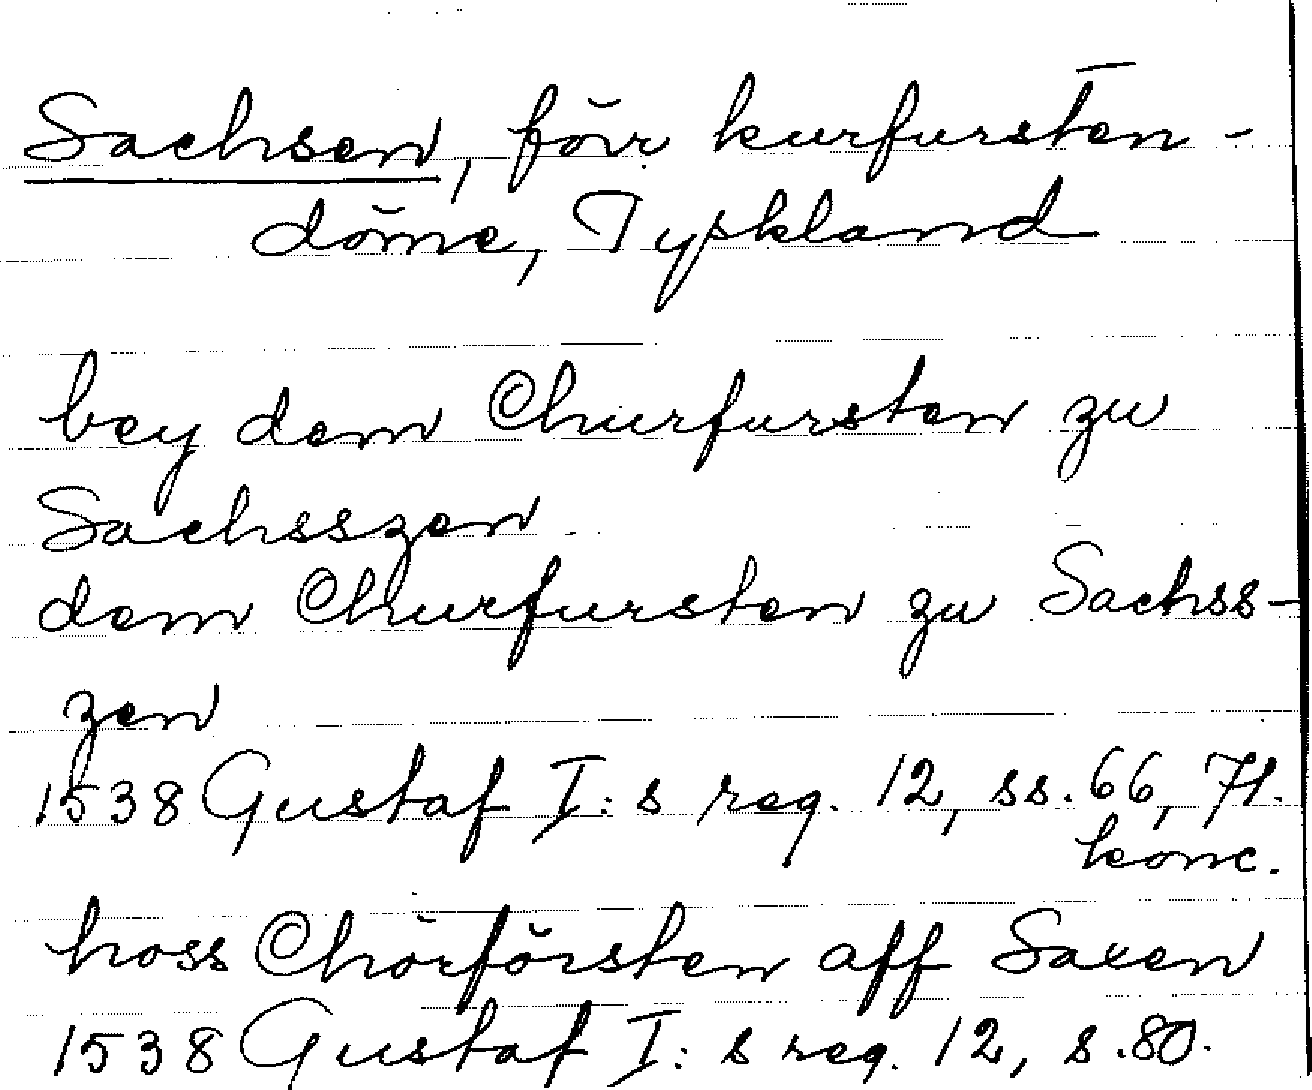 Sachsen, förr kurfursten-
döme, Tyskland
bey dem Churfursten zu
Sachsszen
dem Churfursten zu Sachss-
zen
1538 Gustaf I:s reg. 12, ss. 66, 71.
konc.
hoss Chörförsten aff Saxen
1538 Gustaf I:s reg. 12, s. 80.